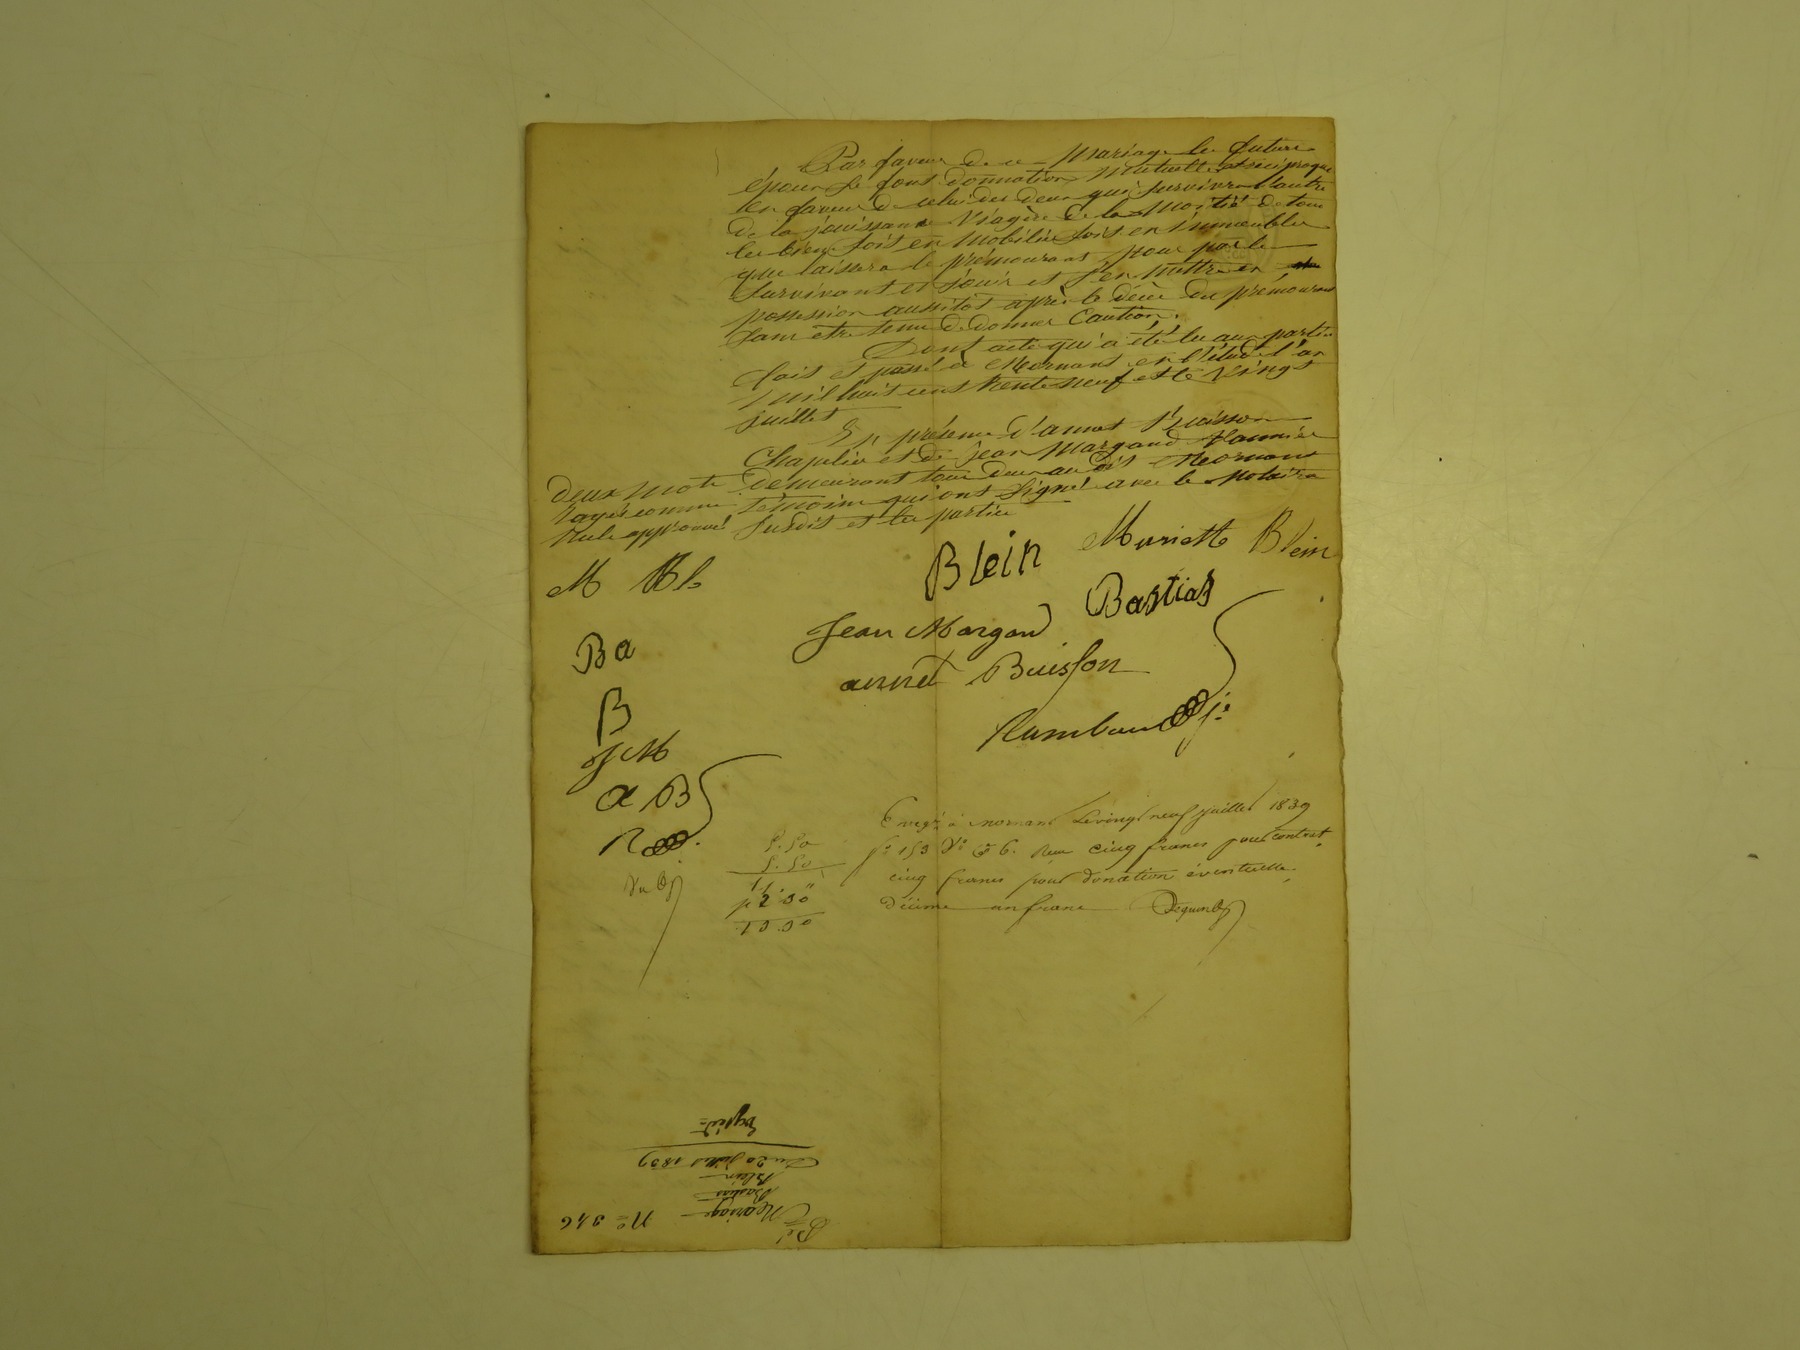 Par faveur de ce Mariage les futurs
époux se font donnation Mutuelle et réciproque
en faveur de celui des deux qui survivra l'autre
de la jouissance Viagère de la Moitié de tous
les biens soit en Mobilier soit en immeubles
que laissera le prémourant pour par le
survivant en jouir et s'en mettre en
possession aussitôt après le décès du prémourant
sans être tenu de donner Caution.
Dont acte qui a été lu aux parties
fait et passé à Mornant en l'étude l'an
mil huit cent trente neuf et le vingt
juillet
En présence d'annet Buisson
Chapelier et de jean Margand
demeurant tous deux au dit Mornant
témoins qui ont signé avec le Notaire
susdit et les parties
deux mots
rayés comme
nuls approuvé
Blein Mariette Blein
M Bl
Bastias
Jean Margand
Ba
annet Buisson
B
Rambaud
J M
a B
R
Enregé à Mornant le vingt neuf juillet 1839
fo 153 Vo Ce 6. Reçu cinq francs pour contrat,
cinq francs pour donation éventuelle,
décime un franc
5.50
5.50
11 "
Mariage
Bastias
Blein
Du 20 juillet 1839
Expédié
No 346